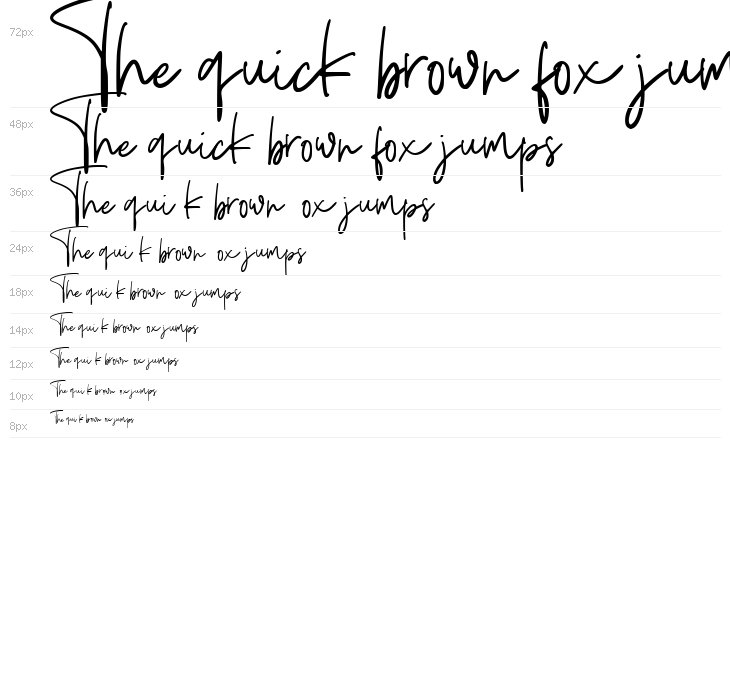 72px The quick brown fox jum
48px The quick brown fox jumps
36px The qui k brown ox jumps
24px The qui k brown ox jumps
18px The qui k brown ox jumps
14px The qui k brown ox jumps
12px The qui k brown ox jumps
10px The qui k brown ox jumps
8px The qui k brown ox jumps